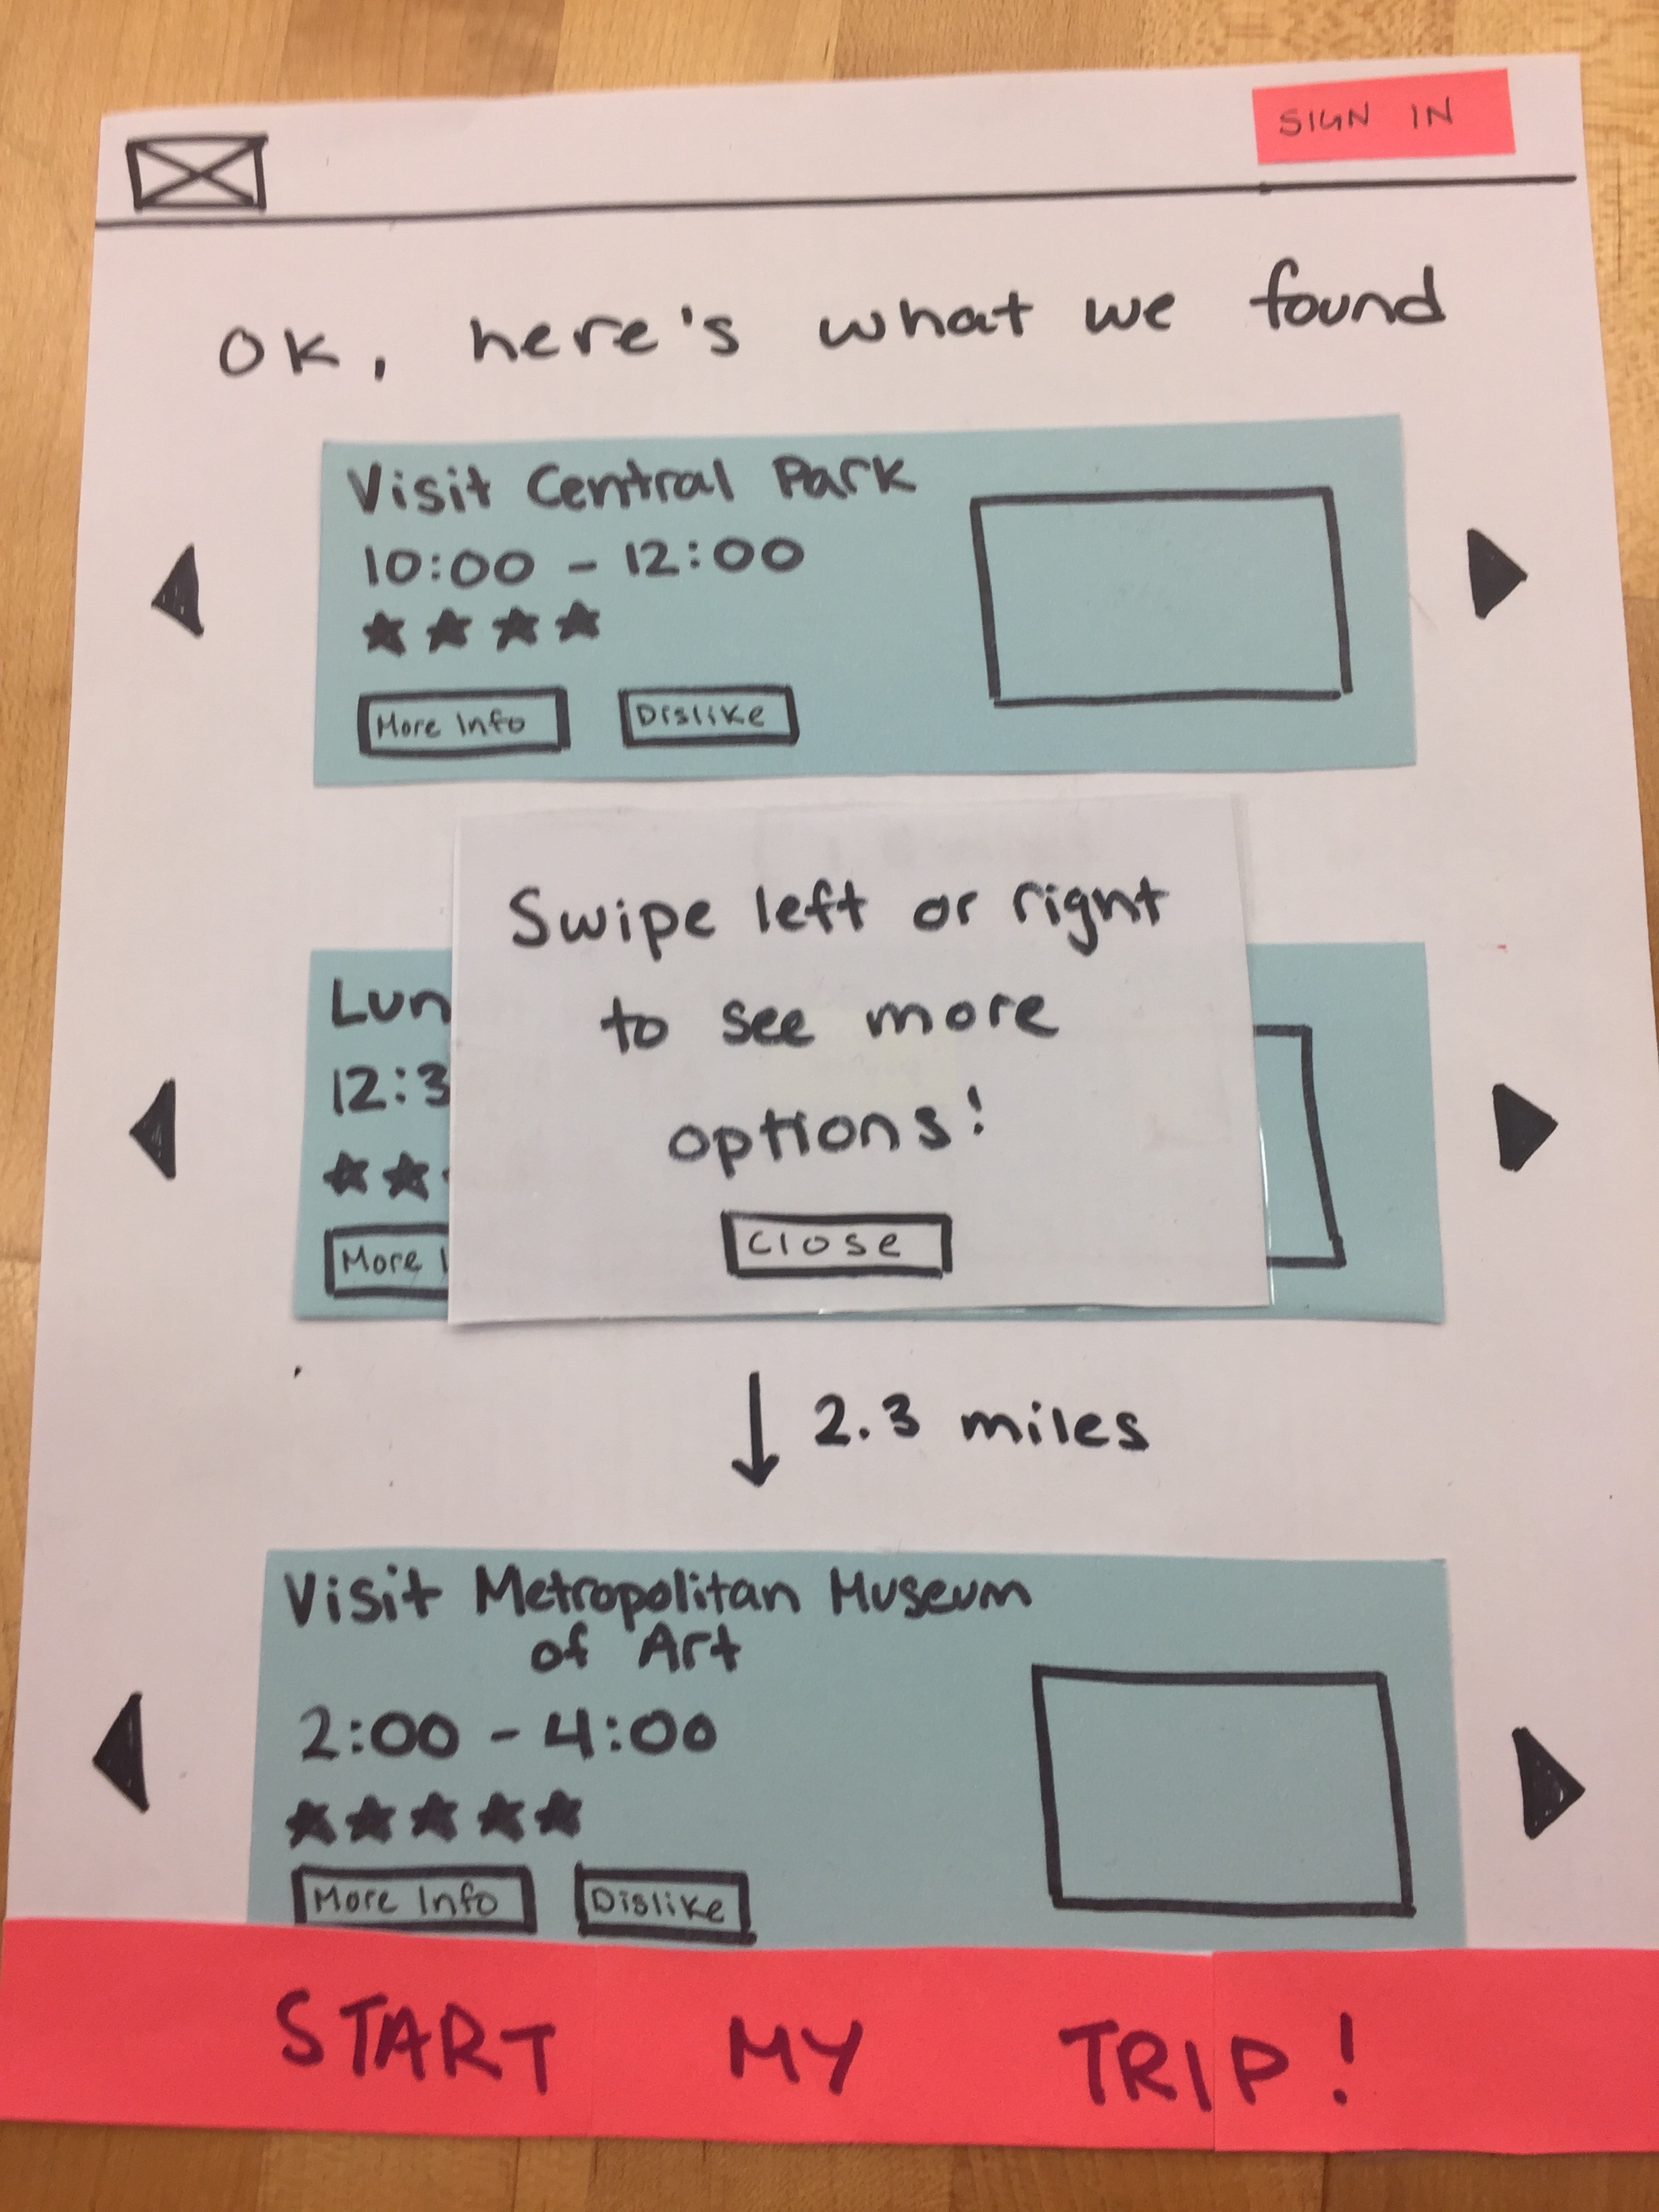 SIGN IN
OK, here's what we found
Visit Central Park
10:00 - 12:00
More Info
Dislike
Swipe left or right
to see more
options!
Close
Lun
12:3
More
2.3 miles
Visit Metropolitan Museum
of Art
2:00 - 4:00
More Info
Dislike
START MY TRIP!